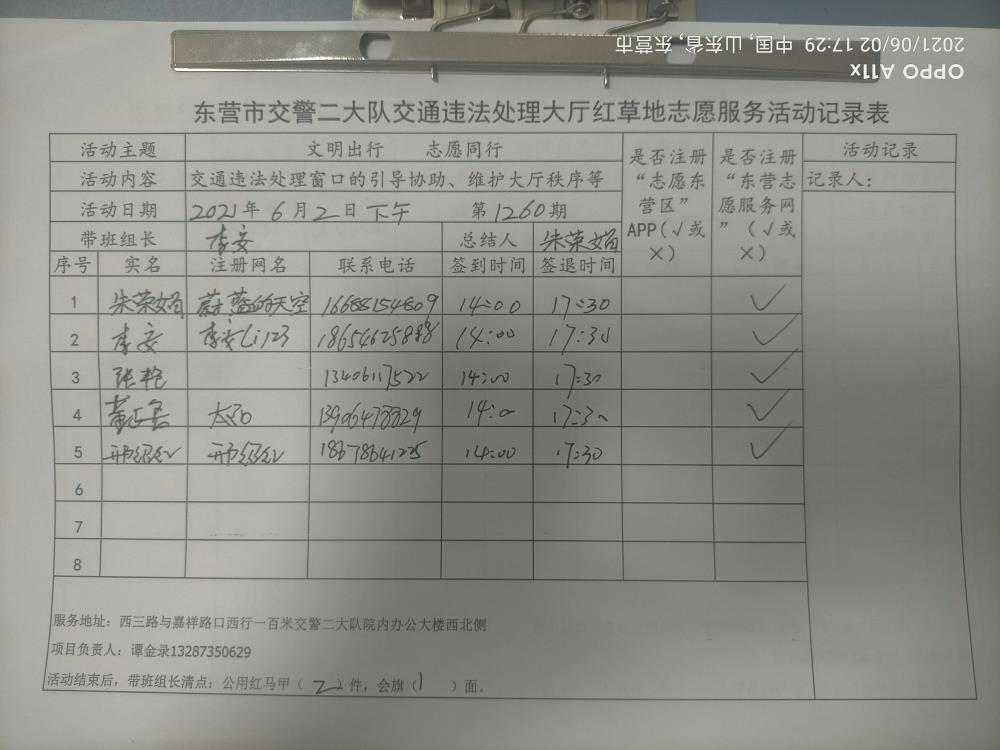 2021/06/02 17:29 中国, 山东省, 东营市
OPPO A11x
东营市交警二大队交通违法处理大厅红草地志愿服务活动记录表
活动主题 文明出行 志愿同行 是否注册“志愿东营区”APP(√或×) 是否注册“东营志愿服务网”(√或×) 活动记录
活动内容 交通违法处理窗口的引导协助、维护大厅秩序等 记录人:
活动日期 2021年 6月2日下午 第1260期
带班组长 李安 总结人 朱荣娟
序号 实名 注册网名 联系电话 签到时间 签退时间
1 朱荣娟 蔚蓝的天空 16688154809 14:00 17:30 √
2 李安 李安li123 18654625888 14:00 17:30 √
3 张艳 13406117522 14:00 17:30 √
4 14:00 17:30 √
5 18678641225 14:00 17:30 √
6
7
8
服务地址:西三路与嘉祥路口西行一百米交警二大队院内办公大楼西北侧
项目负责人:谭金录13287350629
活动结束后,带班组长清点:公用红马甲(2)件,会旗(1)面。